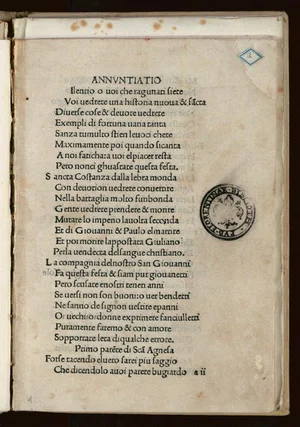 ANNVNTIATIO
Ilentio o uoi che ragunati siete
Voi uedrete una historia nuoua & scta
Diuerse cose & deuote uedrete
Exempli di fortuna uaria tanta
Sanza tumulto stien leuoci chete
Maximamente poi quando sicanta
A noi faticha:a uoi elpiacer resta
Pero nonci ghuastate questa festa.
Sancta Costanza dalla lebra monda
Con deuotion uedrete conuertire
Nella battaglia molto furibonda
Gente uedrete prendere & morire
Mutare lo imperio lauolta seconda
Et di Giouanni & Paulo elmartore
Et poi morire lappostata Giuliano
Per la uendecta del sangue christiano.
La compagnia del nostro San Giouanni
Fa questa festa & siam pur giouanetti
Pero scusate enostri teneri anni
Se uersi non son buoni:o uer ben detti
Ne sanno de signori uestire epanni
O uecchi:o donne exprimere fanciulletti
Puramente faremo & con amore
Sopportate leta di qualche errore.
Primo parēte di Scā Agnesa
Forse tacendo eluero sarei piu saggio
Che dicendolo a uoi parere bugiardo a ii